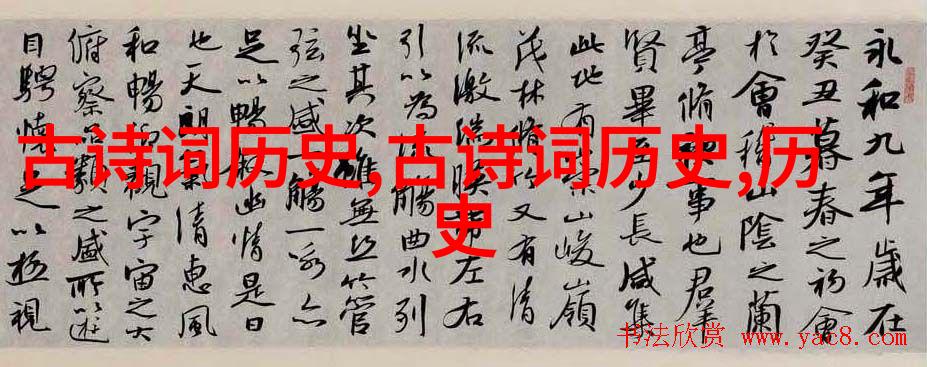 永和九年歲在
癸丑暮春之初會
於會稽山陰之蘭
亭脩禊事也羣
賢畢至少長咸集
此地有崇山峻嶺
茂林脩竹又有清
流激湍暎帶左右
引以為流觴曲水列
坐其次雖無絲竹管
弦之盛一觴一詠亦
足以暢敘幽情是日
也天朗氣清惠風
和暢仰觀宇宙之大
俯察品類之盛所以遊
目騁懷足以極視
古诗词历史,古诗词历史,历
史
书法欣赏 www.yac8.com